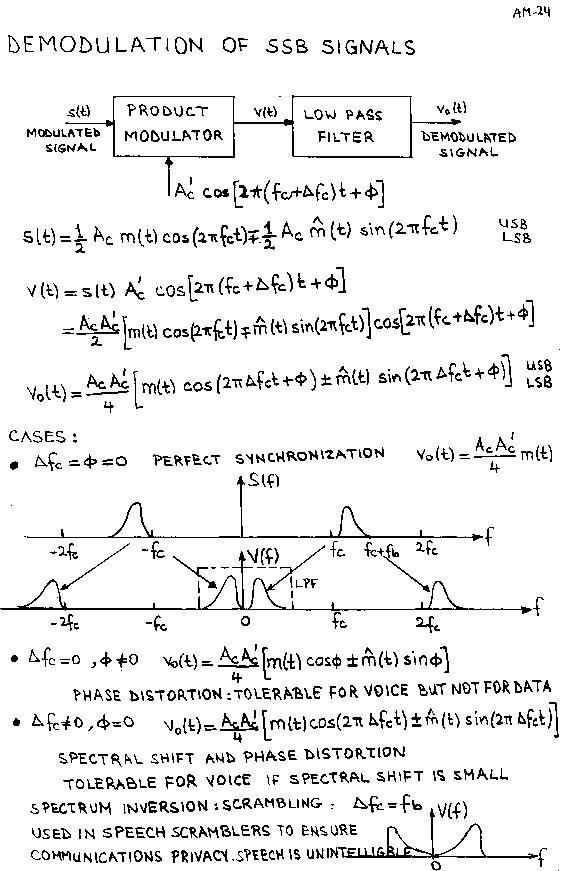 AM-24
DEMODULATION OF SSB SIGNALS
s(t) PRODUCT MODULATOR v(t) LOW PASS FILTER v₀(t)
MODULATED SIGNAL DEMODULATED SIGNAL
A'c cos[2π(fc+Δfc)t+Φ]
S(t) = 1/2 Ac m(t) cos(2πfct) ∓ 1/2 Ac m̂(t) sin(2πfct) USB LSB
V(t) = s(t) A'c cos[2π(fc+Δfc)t+Φ]
= AcA'c/2 [m(t) cos(2πfct) ∓ m̂(t) sin(2πfct)] cos[2π(fc+Δfc)t+Φ]
V₀(t) = AcA'c/4 [m(t) cos(2πΔfct+Φ) ± m̂(t) sin(2πΔfct+Φ)] USB LSB
CASES:
• Δfc=Φ=0 PERFECT SYNCHRONIZATION V₀(t) = AcA'c/4 m(t)
S(f)
-2fc -fc fc fc+fb 2fc f
V(f)
LPF
-2fc -fc 0 fc 2fc f
• Δfc=0, Φ≠0 V₀(t) = AcA'c/4 [m(t) cosΦ ± m̂(t) sinΦ]
PHASE DISTORTION: TOLERABLE FOR VOICE BUT NOT FOR DATA
• Δfc≠0, Φ=0 V₀(t) = AcA'c/4 [m(t) cos(2πΔfct) ± m̂(t) sin(2πΔfct)]
SPECTRAL SHIFT AND PHASE DISTORTION
TOLERABLE FOR VOICE IF SPECTRAL SHIFT IS SMALL
SPECTRUM INVERSION: SCRAMBLING: Δfc=fb V(f)
USED IN SPEECH SCRAMBLERS TO ENSURE
COMMUNICATIONS PRIVACY. SPEECH IS UNINTELLIGIBLE
0 f